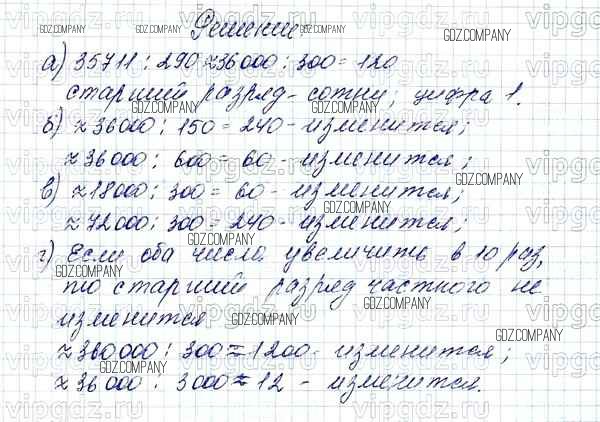 Решение.
а) 35711 : 290 ≈ 36000 : 300 = 120
старший разряд - сотни; цифра 1.
б) ≈ 36000 : 150 = 240 - изменится;
≈ 36000 : 600 = 60 - изменится;
в) ≈ 18000 : 300 = 60 - изменится;
≈ 72000 : 300 = 240 - изменится;
г) Если оба числа увеличить в 10 раз,
то старший разряд частного не
изменится
≈ 360000 : 300 ≈ 1200 - изменится;
≈ 36000 : 3000 ≈ 12 - изменится.
GDZ.COMPANY
vipgdz.ru